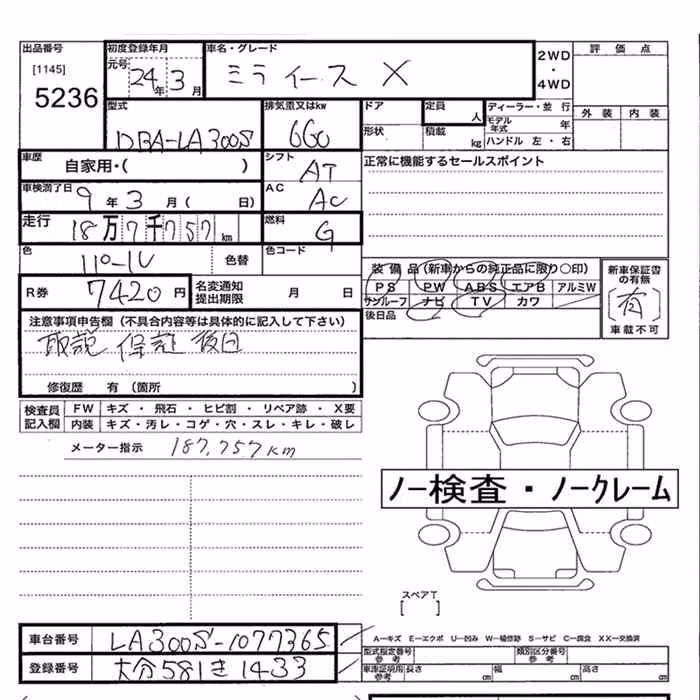 出品番号
[1145]
5236
初度登録年月
元号 24年 3月
車名・グレード
ミライース X
2WD
・
4WD
評価点
外装 内装
型式
DBA-LA300S
排気量又はkw
660
ドア
形状
定員 人
積載 kg
ディーラー・並行
モデル年式 年
ハンドル 左・右
車歴
自家用・( )
シフト
AT
正常に機能するセールスポイント
車検満了日
9年 3月( 日)
AC
AC
走行
18万7千757km
燃料
G
色
パール
色替
色コード
装備品(新車からの純正品に限り○印)
PS PW ABS エアB アルミW
サンルーフ ナビ TV カワ
後日品
新車保証書の有無
有
車載不可
R券 7420円
名変通知
提出期限 月 日
注意事項申告欄(不具合内容等は具体的に記入して下さい)
取説 保証 後日
修復歴 有(箇所 )
検査員記入欄
FW キズ・飛石・ヒビ割・リペア跡・X要
内装 キズ・汚レ・コゲ・穴・スレ・キレ・破レ
メーター指示 187,757km
ノー検査・ノークレーム
スペアT
[ ]
車台番号 LA300S-1077365
登録番号 大分581き1433
A-キズ E-エクボ U-凹み W-補修跡 S-サビ C-腐食 XX-交換済
型式指定番号 参考
類別区分番号 参考
車庫証明用 参考
長さ cm 幅 cm 高さ cm